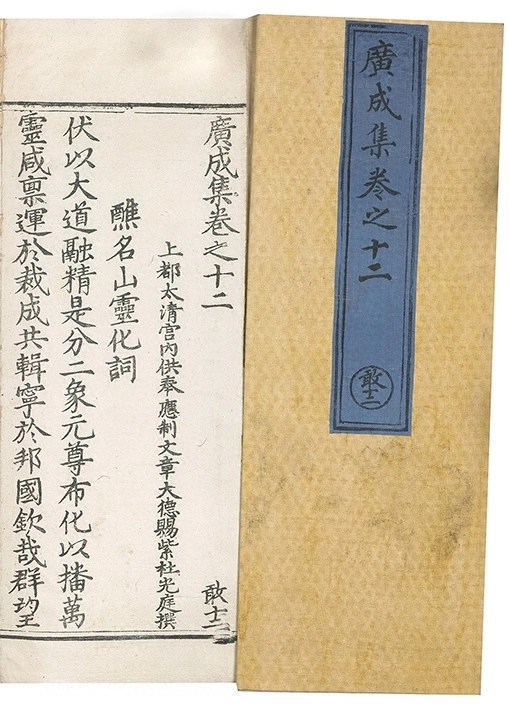 廣成集卷之十二
敢十二
廣成集卷之十二
敢十二
上都太清宮內供奉應制文章大德賜紫杜光庭撰
醮名山靈化詞
伏以大道融精是分二象元尊布化以播萬
靈咸禀運於裁成共輯寧於邦國欽哉群聖